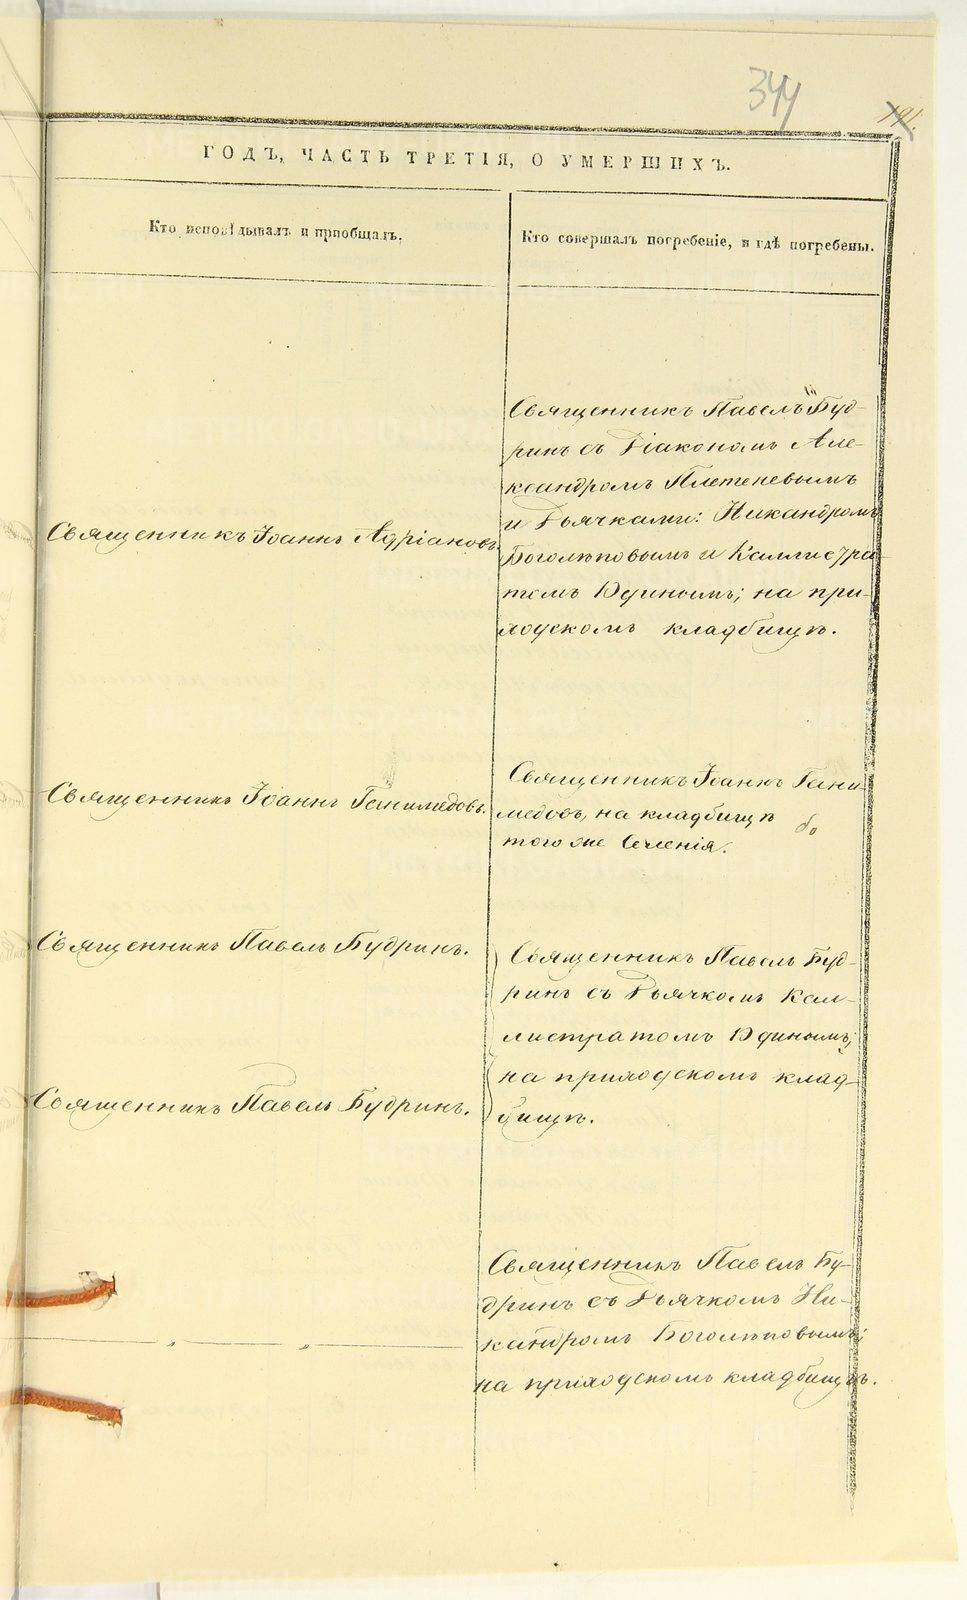 344
191.
ГОДЪ, ЧАСТЬ ТРЕТІЯ, О УМЕРШИХЪ.
Кто исповѣдывалъ и пріобщалъ.
Кто совершалъ погребеніе, и гдѣ погребены.
Священникъ Павелъ Буд-
ринъ съ Діакономъ Але-
ксандромъ Плетеневымъ
и Дьячками: Никандромъ
Боголѣповымъ и Каллистра-
томъ Юдинымъ; на при-
ходскомъ кладбищѣ.
Священникъ Іоаннъ Адріановъ
Священникъ Іоаннъ Ганимедовъ.
Священникъ Іоаннъ Гани-
медовъ, на кладбищѣ
того же Селенія.
Священникъ Павелъ Будринъ.
Священникъ Павелъ Буд-
ринъ съ Дьячкомъ Кал-
листратомъ Юдинымъ;
на приходскомъ клад-
бищѣ.
Священникъ Павелъ Будринъ.
Священникъ Павелъ Бу-
дринъ съ Дьячкомъ Ни-
кандромъ Боголѣповымъ;
на приходскомъ кладбищѣ.
METRIKI.GASO-URAL.RU